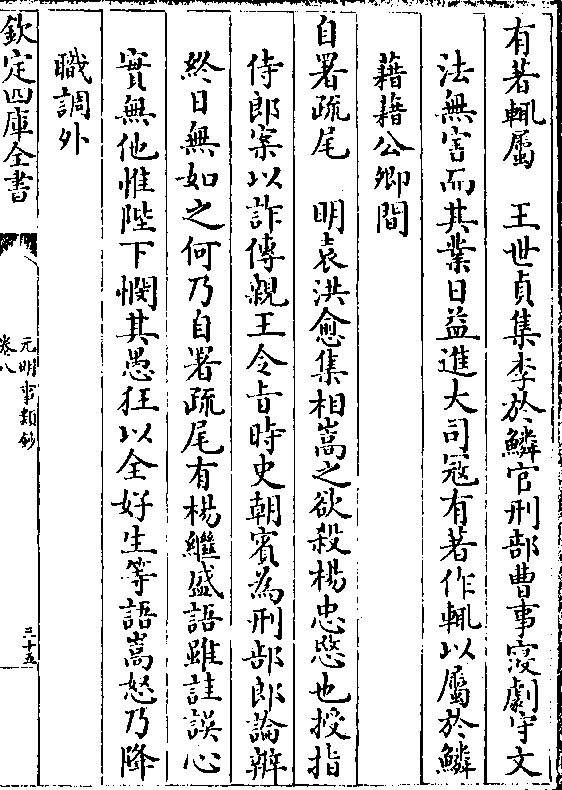 有著輒屬　王世貞集李於鱗官刑部曹事寖劇守文
法無害而其業日益進大司寇有著作輒以屬於鱗
藉藉公卿間
自署疏尾　明袁洪愈集相嵩之欲殺楊忠愍也授指
侍郎案以詐傳親王令旨時史朝賓為刑部郎論辨
終日無如之何乃自署疏尾有楊繼盛語雖詿誤心
實無他惟陛下憫其愚狂以全好生等語嵩怒乃降
職調外
欽定四庫全書
元明事類鈔
卷八
三十五